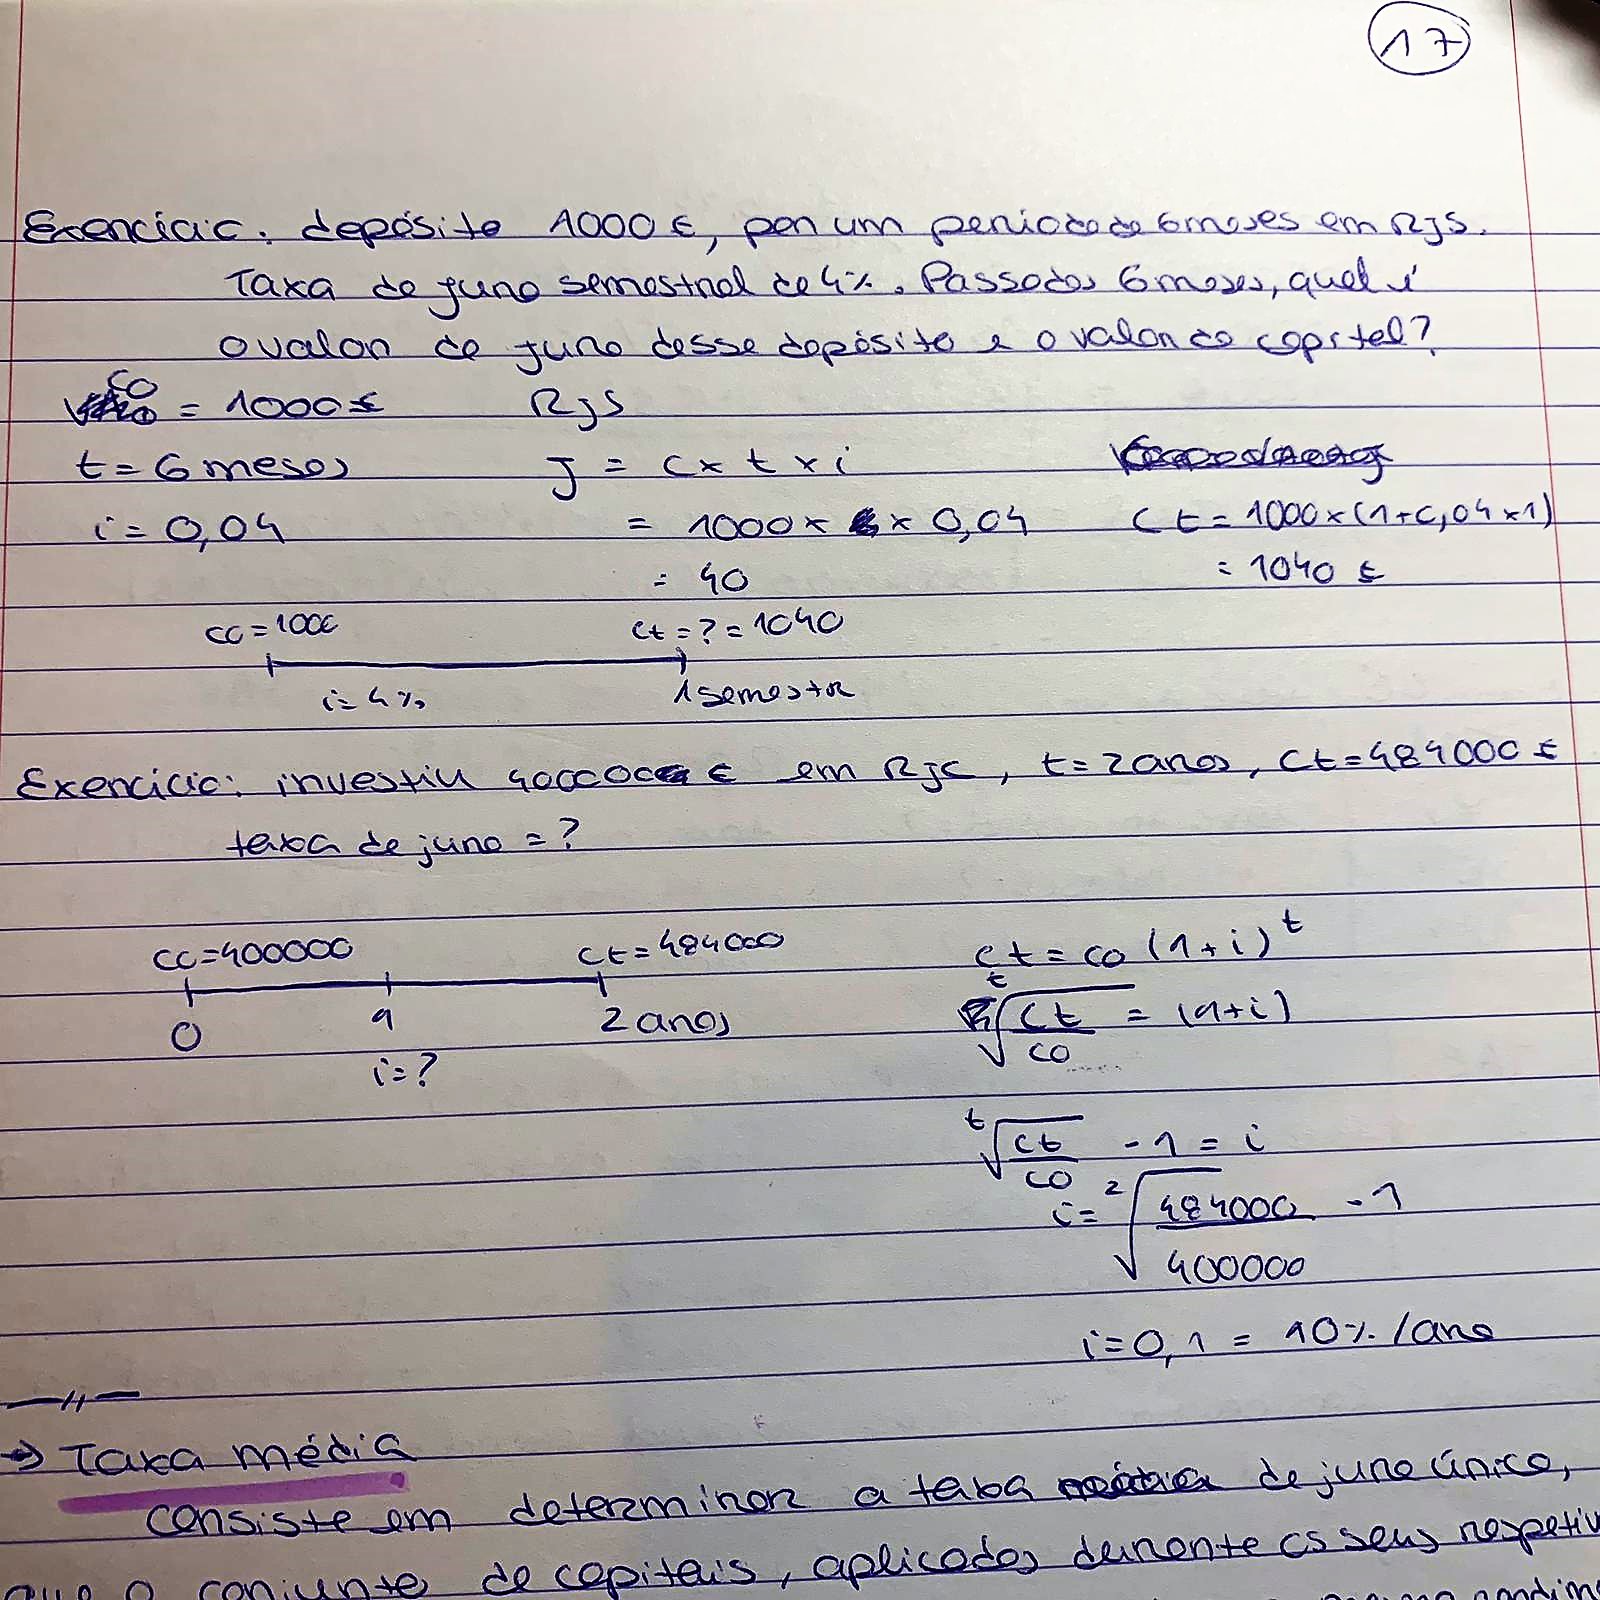 17
Exercício: depósito 1000 €, por um período de 6 meses em RJS.
Taxa de juro semestral de 4%. Passados 6 meses, qual é
o valor de juro desse depósito e o valor do capital?
C0 = 1000 € RJS
t = 6 meses J = C × t × i
i = 0,04 = 1000 × × 0,04 Ct = 1000 × (1+0,04 × 1)
= 40 = 1040 €
C0 = 1000 Ct = ? = 1040
i = 4% 1 semestre
Exercício: investiu 400000 € em RJC, t = 2 anos, Ct = 484000 €
taxa de juro = ?
C0 = 400000 Ct = 484000 Ct = C0 (1+i)^t
0 1 2 anos t√(Ct/C0) = (1+i)
i = ?
t√(Ct/C0) - 1 = i
i = 2√(484000/400000) - 1
i = 0,1 = 10% /ano
—//—
→ Taxa média
Consiste em determinar a taxa de juro único,
que o conjunto de capitais, aplicados durante os seus respetiv